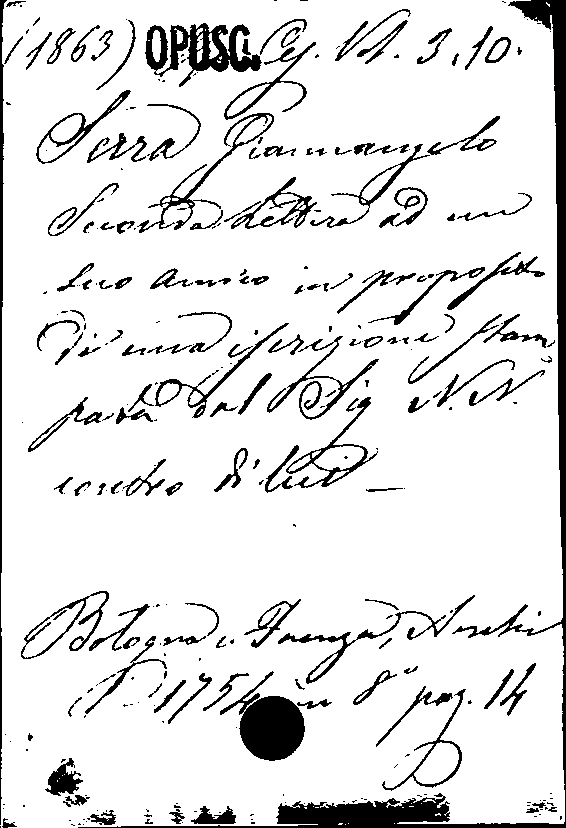 (1863) OPUSC. Cg. VI. 3.10.
Serra Giannangelo
Seconda Lettera ad un
suo amico in proposito
di una iscrizione stam=
pata dal Sig N. N.
contro di lui —
Bologna e Faenza, Archi
1754 in 8° pag. 14